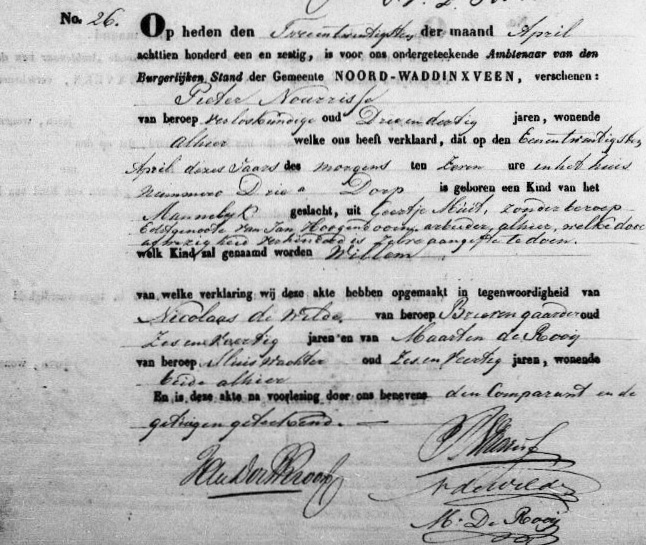 No. 26.
Op heden den Tweeentwintigsten der maand April
achttien honderd een en zestig, is voor ons ondergeteekende Ambtenaar van den
Burgerlijken Stand der Gemeente NOORD-WADDINXVEEN, verschenen:
Pieter Nourisse
van beroep verloskundige oud Drieendertig jaren, wonende
alhier welke ons heeft verklaard, dat op den Eenentwintigsten
April dezes Jaars des morgens ten Zeven ure in het huis
nummero Drie a Dorp is geboren een Kind van het
Mannelyk geslacht, uit Geertje Muit, zonder beroep
Echtgenoote van Jan Hoogenboom, arbeider, alhier, welke door
afwezigheid verhinderd is zelve aangifte te doen.
welk Kind zal genaamd worden Willem
van welke verklaring wij deze akte hebben opgemaakt in tegenwoordigheid van
Nicolaas de Wilde, van beroep Brievengaarder oud
Zesenveertig jaren en van Maarten de Rooij
van beroep Sluiswachter oud Zesenveertig jaren, wonende
beide alhier
En is deze akte na voorlezing door ons benevens den Comparant en de
getuigen geteekend.
N de Wilde
M. De Rooij